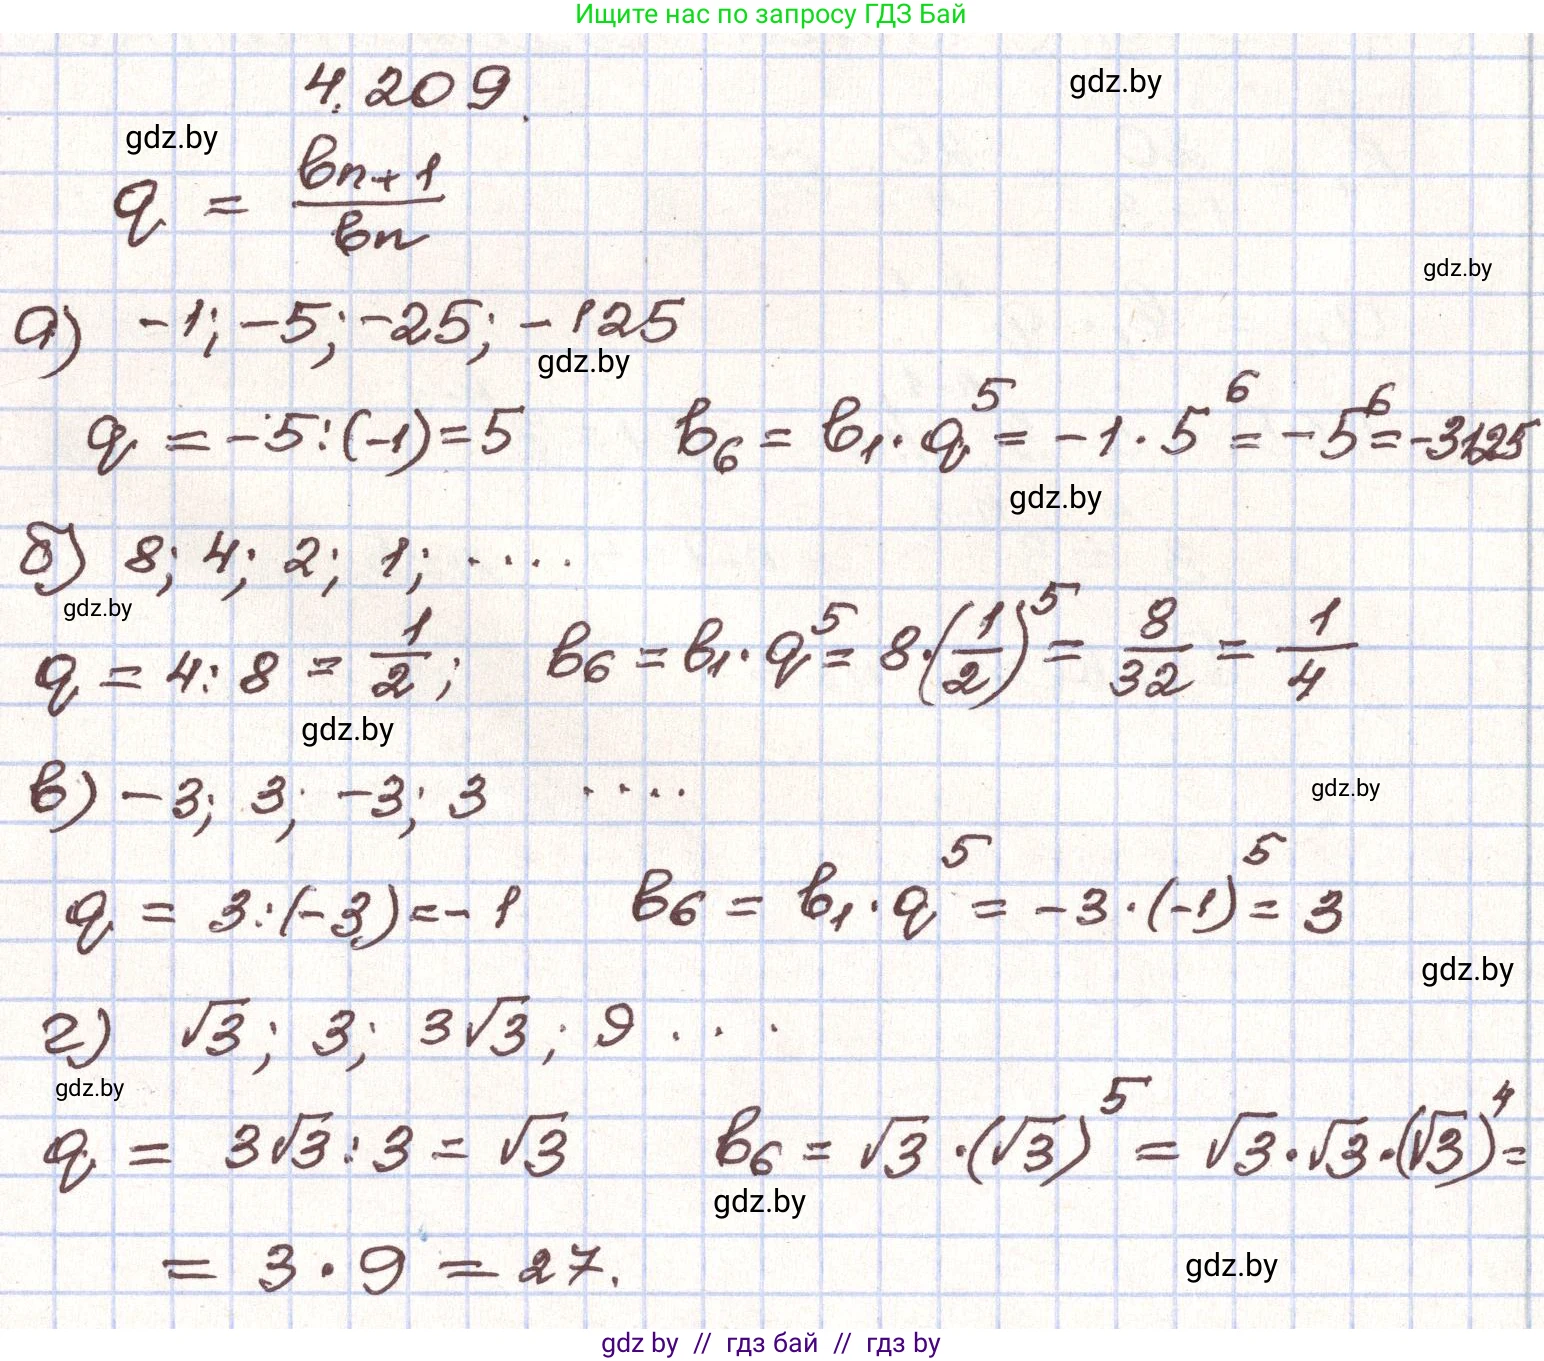 Ищите нас по запросу ГДЗ Бай
4.209
gdz.by
gdz.by
q = bn+1 / bn
gdz.by
а) -1; -5; -25; -125
gdz.by
q = -5 : (-1) = 5 b₆ = b₁ · q⁵ = -1 · 5⁶ = -5⁶ = -3125
gdz.by
б) 8; 4; 2; 1; ....
gdz.by
q = 4 : 8 = 1/2; b₆ = b₁ · q⁵ = 8 · (1/2)⁵ = 8/32 = 1/4
gdz.by
в) -3; 3; -3; 3 ....
gdz.by
q = 3 : (-3) = -1 b₆ = b₁ · q⁵ = -3 · (-1)⁵ = 3
gdz.by
г) √3; 3; 3√3; 9 ...
gdz.by
q = 3√3 : 3 = √3 b₆ = √3 · (√3)⁵ = √3 · √3 · (√3)⁴ =
gdz.by
= 3 · 9 = 27.
gdz.by
gdz by // гдз бай // гдз by